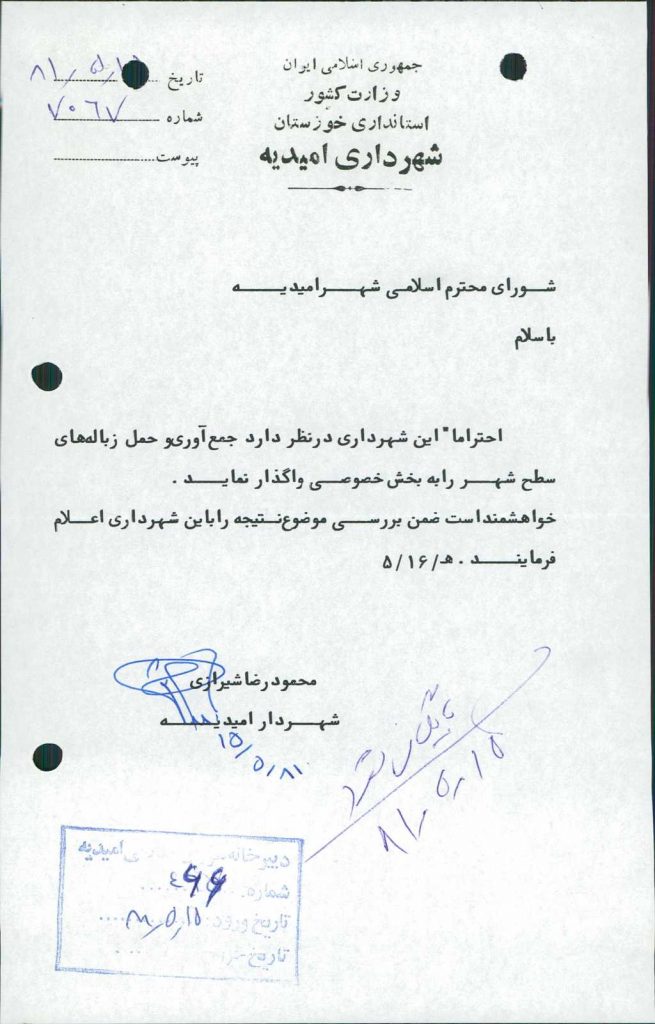 جمهوری اسلامی ایران
وزارت کشور
استانداری خوزستان
شهرداری امیدیه
تاریخ
شماره ۷۰۶۷
پیوست
شورای محترم اسلامی شهر امیدیه
باسلام
احتراما" این شهرداری درنظر دارد جمع‌آوری و حمل زباله‌های
سطح شهر را به بخش خصوصی واگذار نماید .
خواهشمند است ضمن بررسی موضوع نتیجه را باین شهرداری اعلام
فرمایند . هـ/۵/۱۶
محمودرضا شیرازی
شهردار امیدیه
۱۵/۵/۸۱
۸۱،۵،۱۵
دبیرخانه امیدیه
شماره
تاریخ ورود
تاریخ